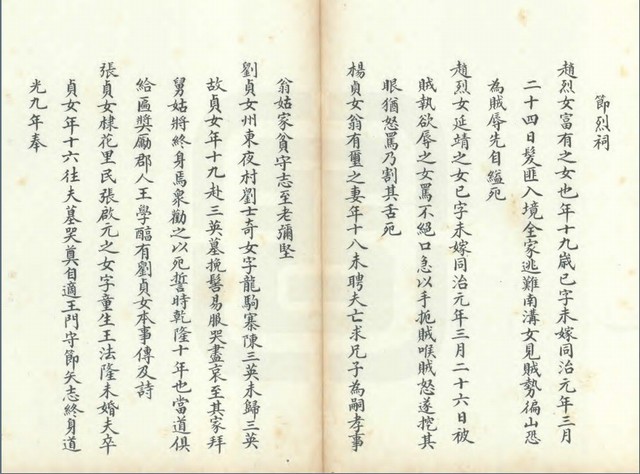 節烈祠
趙烈女富有之女也年十九歲已字未嫁同治元年三月
二十四日髮匪入境全家逃難南溝女見賊勢徧山恐
為賊辱先自縊死
趙烈女延靖之女已字未嫁同治元年三月二十六日被
賊執欲辱之女罵不絕口急以手扼賊喉賊怒遂挖其
眼猶怒罵乃割其舌死
楊貞女翁有璽之妻年十八未聘夫亡求兄子為嗣孝事
翁姑家貧守志至老彌堅
劉貞女州東夜村劉士奇女字龍駒寨陳三英未歸三英
故貞女年十九赴三英墓挽髻易服哭盡哀至其家拜
舅姑將終身焉衆勸之以死誓時乾隆十年也當道俱
給匾獎勵郡人王學醢有劉貞女本事傳及詩
張貞女棣花里民張啟元之女字童生王法隆未婚夫卒
貞女年十六往夫墓哭奠自適王門守節矢志終身道
光九年奉